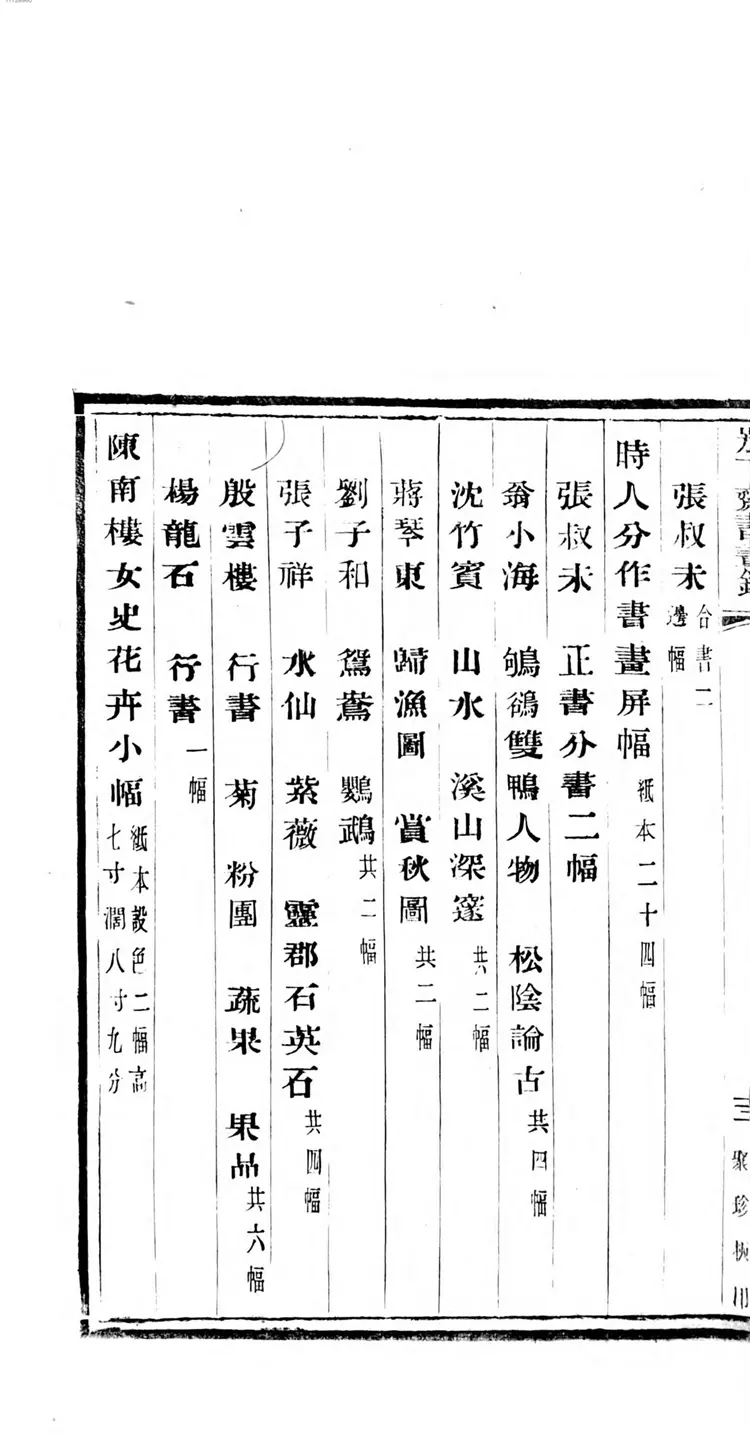 別下齋書畫錄
三
聚珍板印
張叔未 合書二邊幅
時人分作書畫屏幅 紙本二十四幅
張叔未 正書分書二幅
翁小海 鴝鵒雙鴨人物 松陰論古 共四幅
沈竹賓 山水 溪山深邃 共二幅
蔣琴東 歸漁圖 賞秋圖 共二幅
劉子和 鴛鴦 鸚鵡 共二幅
張子祥 水仙 紫薇 靈郡石英石 共四幅
殷雲樓 行書 菊 粉團 蔬果 果品 共六幅
楊龍石 行書 一幅
陳南樓女史花卉小幅 紙本設色二幅高七寸濶八寸九分